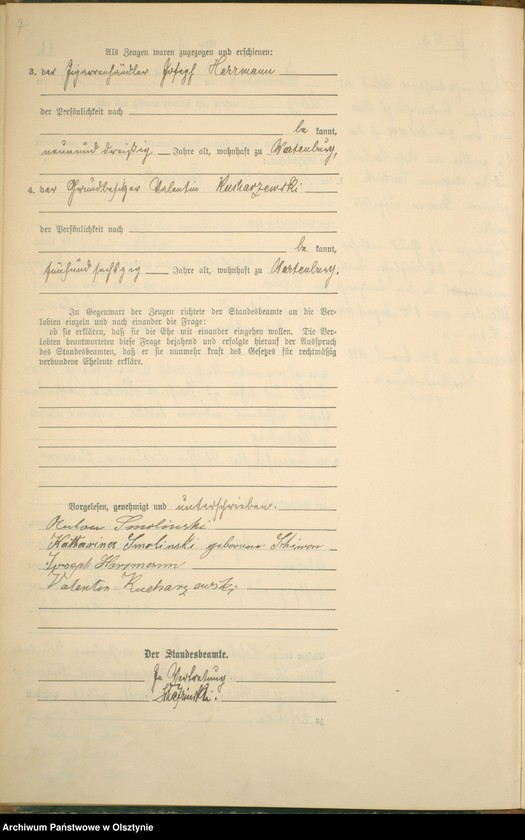 7
Als Zeugen waren zugezogen und erschienen:
3. der Zigarrenhändler Josef Herrmann
der Persönlichkeit nach
be kannt,
neunund dreißig Jahre alt, wohnhaft zu Wartenburg,
4. der Grundbesitzer Valentin Kucharzewski
der Persönlichkeit nach
be kannt,
fünfund sechzig Jahre alt, wohnhaft zu Wartenburg.
In Gegenwart der Zeugen richtete der Standesbeamte an die Ver-
lobten einzeln und nach einander die Frage:
ob sie erklären, daß sie die Ehe mit einander eingehen wollen. Die Ver-
lobten beantworteten diese Frage bejahend und erfolgte hierauf der Ausspruch
des Standesbeamten, daß er sie nunmehr kraft des Gesetzes für rechtmäßig
verbundene Eheleute erkläre.
Vorgelesen, genehmigt und unterschrieben.
Anton Smolinski
Katharina Smolinski geborene
Joseph Herrmann
Valentin Kucharzewski
Der Standesbeamte.
In Vertretung
Archiwum Państwowe w Olsztynie